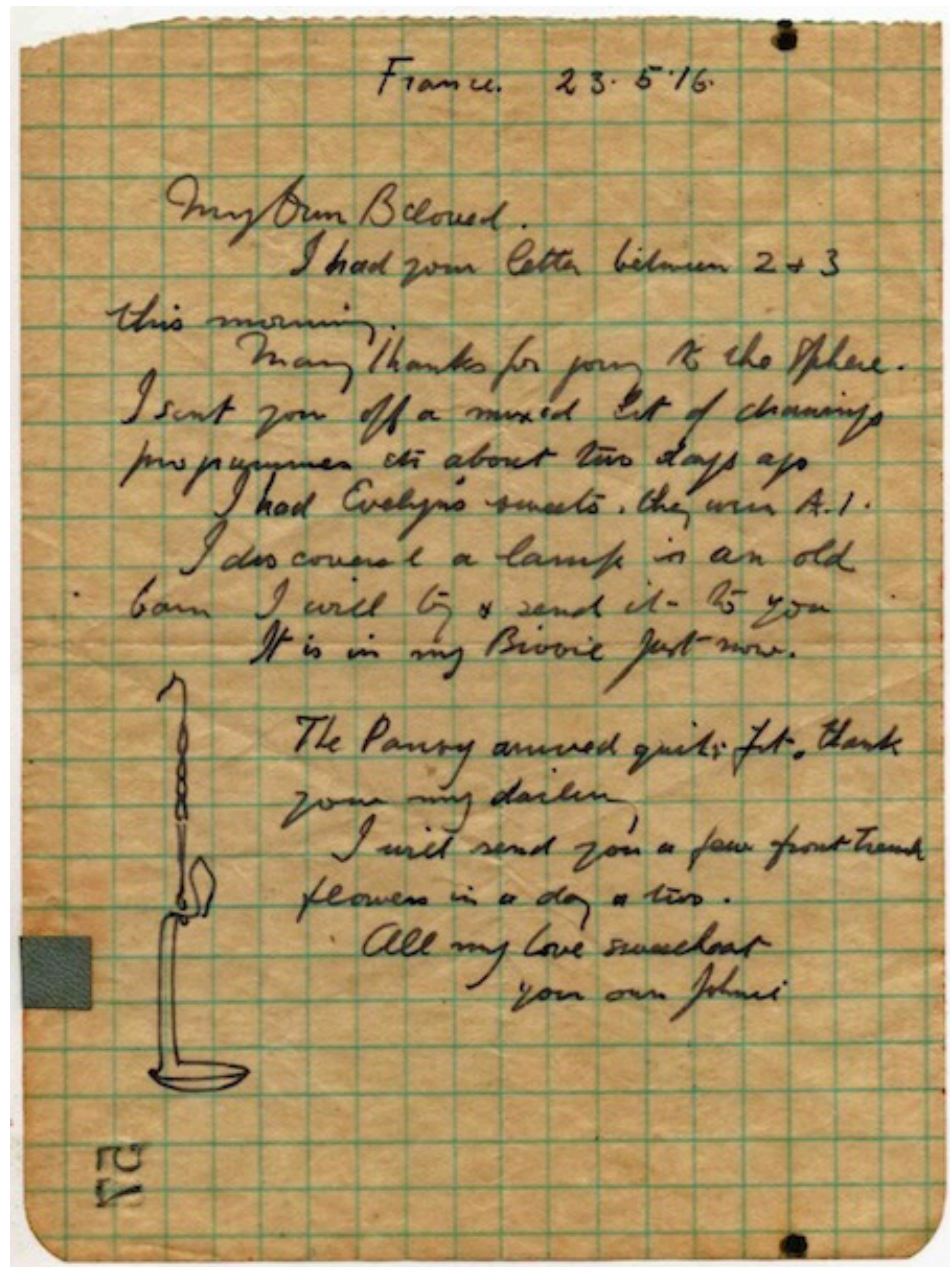 France. 23.5.16.
My Own Beloved.
I had your letter between 2 & 3
this morning.
Many thanks for going to the Sphere.
I sent you off a mixed lot of drawings
programmes etc about two days ago
I had Evelyn's sweets. they were A.1.
I discovered a lamp in an old
barn I will try & send it to you
It is in my Bivvie just now.
The Pansy arrived quite fit, thank
you my darling
I will send you a few front trench
flowers in a day or two.
All my love sweetheart
your own Johnie
57